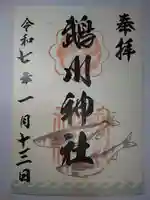 奉拝
鵡川神社
令和七年一月十三日